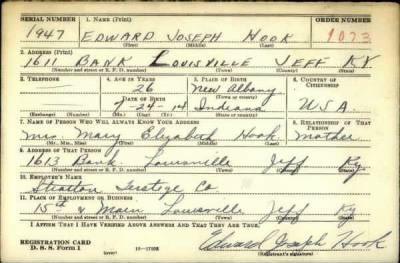 SERIAL NUMBER 1. NAME (Print) ORDER NUMBER
1947 EDWARD JOSEPH HOOK 1073
(First) (Middle) (Last)
2. ADDRESS (Print)
1611 BANK LOUISVILLE JEFF KY
(Number and street or R. F. D. number) (Town) (County) (State)
3. TELEPHONE 4. AGE IN YEARS 5. PLACE OF BIRTH 6. COUNTRY OF CITIZENSHIP
26 New Albany
DATE OF BIRTH
8-24-14 Indiana U.S.A.
(Exchange) (Number) (Mo.) (Day) (Yr.) (State or country)
7. NAME OF PERSON WHO WILL ALWAYS KNOW YOUR ADDRESS 8. RELATIONSHIP OF THAT PERSON
Mrs. Mary Elizabeth Hook Mother
(Mr., Mrs., Miss) (First) (Middle) (Last)
9. ADDRESS OF THAT PERSON
1613 Bank Louisville Jeff Ky.
(Number and street or R. F. D. number) (Town) (County) (State)
10. EMPLOYER'S NAME
Stratton Terstege Co
11. PLACE OF EMPLOYMENT OR BUSINESS
15th & Main Louisville Jeff Ky
(Number and street or R. F. D. number) (Town) (County) (State)
I AFFIRM THAT I HAVE VERIFIED ABOVE ANSWERS AND THAT THEY ARE TRUE.
REGISTRATION CARD
D. S. S. Form 1 (over) Edward Joseph Hook
(Registrant's signature)